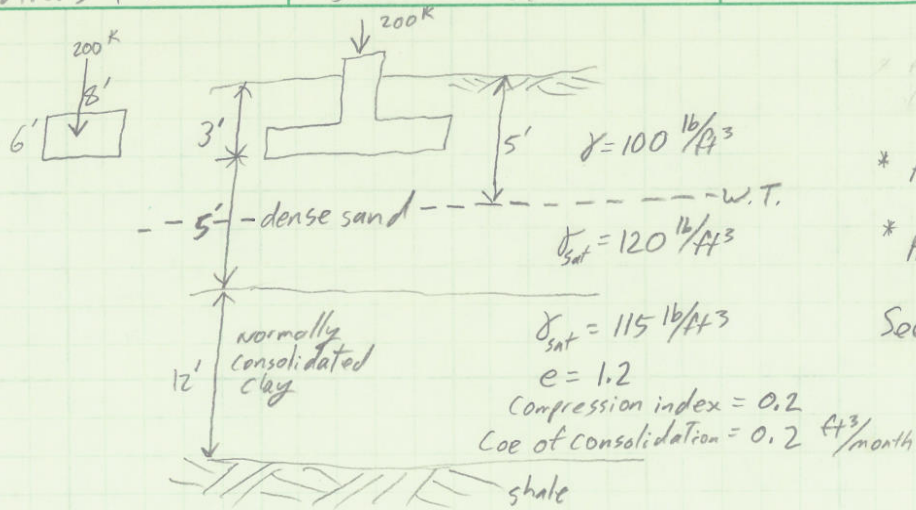 200 K
200 K
8'
6'
3'
5'
γ = 100 lb/ft³
*
W.T.
5' dense sand
γsat = 120 lb/ft³
*
12'
normally
consolidated
clay
γsat = 115 lb/ft³
e = 1.2
Compression index = 0.2
Coe of consolidation = 0.2 ft³/month
shale